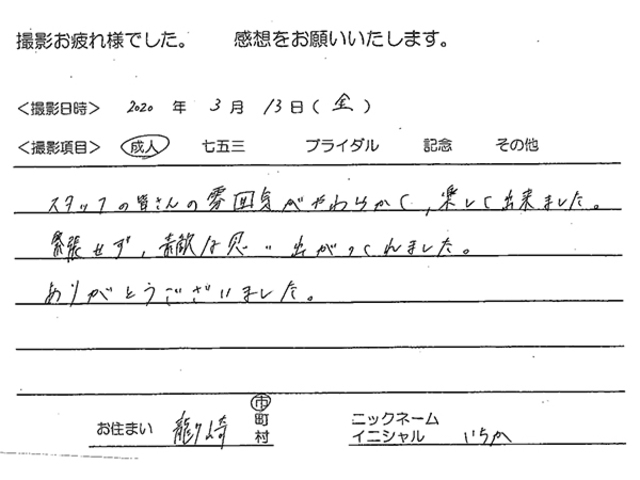 撮影お疲れ様でした。 感想をお願いいたします。
＜撮影日時＞ 2020 年 3 月 13 日 ( 金 )
＜撮影項目＞ 成人 七五三 ブライダル 記念 その他
スタッフの皆さんの雰囲気がやわらかく、楽しく出来ました。
緊張せず、素敵な思い出がつくれました。
ありがとうございました。
お住まい 龍ケ崎 市 町 村
ニックネーム
イニシャル いちか